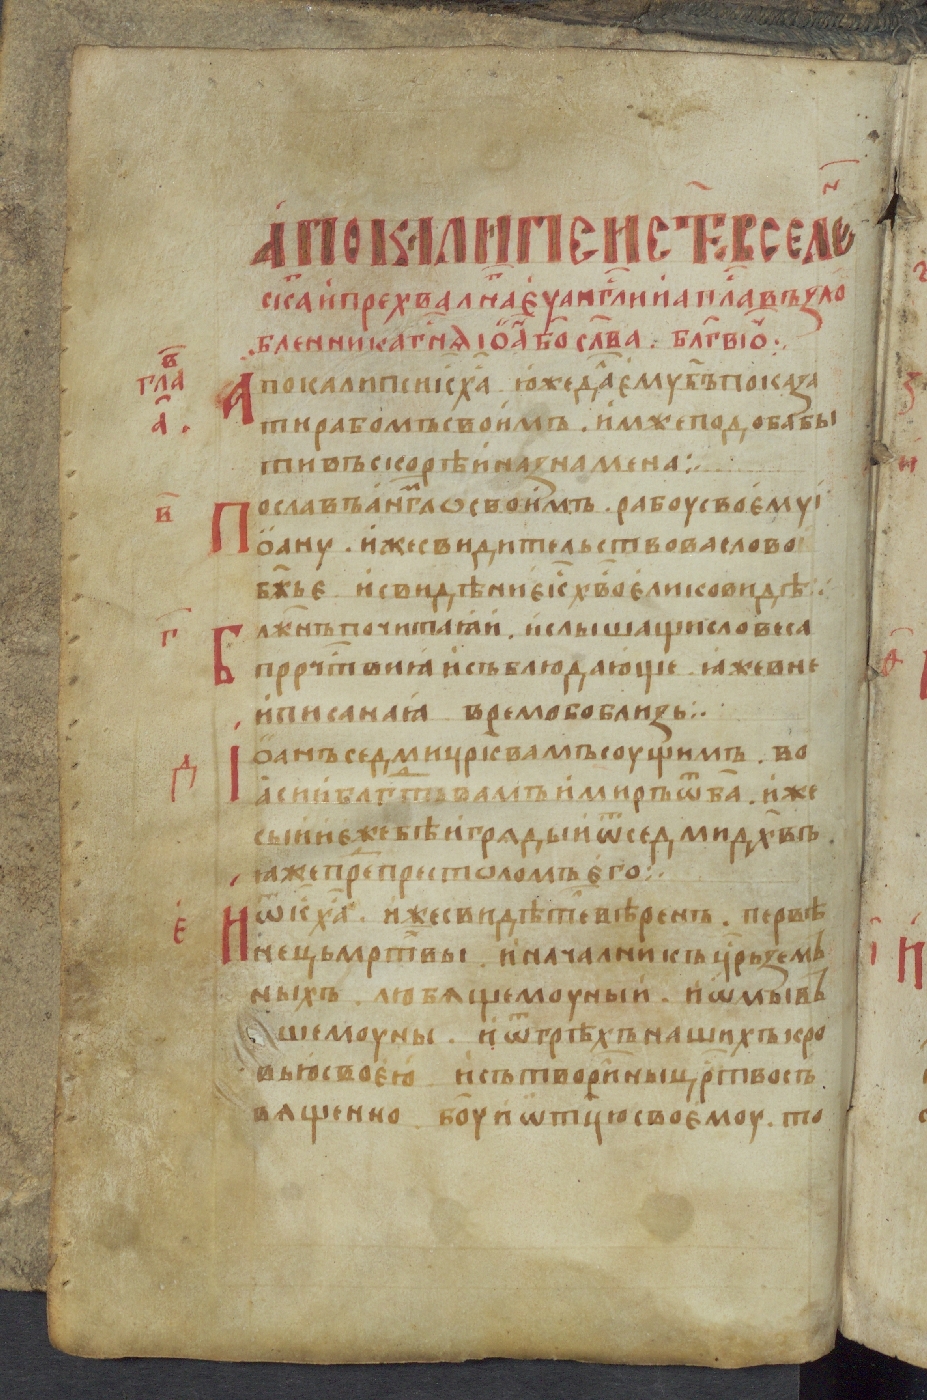 а҆покалипсис ст҃г всело н҇
скⷭ҇а и҆ прехвалнⷯа є҆ѵанг҃лии а пⷭ҇ла въꙁлю
бленника гн҃ѧ і҆ѡⷩ҇а бо҃ослв҃а . блг҃вⷭ҇і ѡ҃ч .
в҃ гла а҃ .
А҆покалипсиі с҃ х҃а ю҆же да҃ є҆мꙋ б҃ъ покаꙁа
ти рабомъ своимъ . и҆мже подобаⷮ бы
ти въскорѣ и наꙁнамена :·
в҃
Пославъ а҆нгл҃ѡⷨ своимъ . рабоу своє҆мꙋ і҆
ѡ҆анꙋ . и҆же свидитєльствова слово
бж҃ьє и҆ свидѣниє і҃с х҃во є҆лико видѣ :·
г҃
Блжⷩ҇ъ почитаꙗ҆и . и слышащи словеса
прⷪ҇рчтⷭ҇виꙗ и҆ съблюдаю҆ще ꙗже в не
и҆ писанаꙗ҆ времѧ бо близь :·
д
І҆ѡ҆анъ седми црⷦ҇квамъ соущимъ . во
а҆сии блгⷣ҇ть вамъ и҆ миръ ѿ б҃а . и҆же
сыи и є҆же бѣ и҆ грѧдыи и ѿ седми дх҃въ .
ꙗже преⷣ престѡломъ є҆го :·
є҆
И ѿ і҃с х҃а . и҆же свидѣтⷧ҇е вѣренъ . первѣ
неⷰ҇ь мртⷡ҇вы . и началникъ цр҃ь ꙁемь
ныхъ . любѧщемоу ныи . и҆ ѡ҆мывъ
шемоу ны . и҆ ѿ грѣхъ нашихъ кро
вью҆ своє҆ю҆ и҆ сътвори ны црⷭ҇тво съ
вѧщенно б҃оу и҆ ѿтцю своє҆моу . то